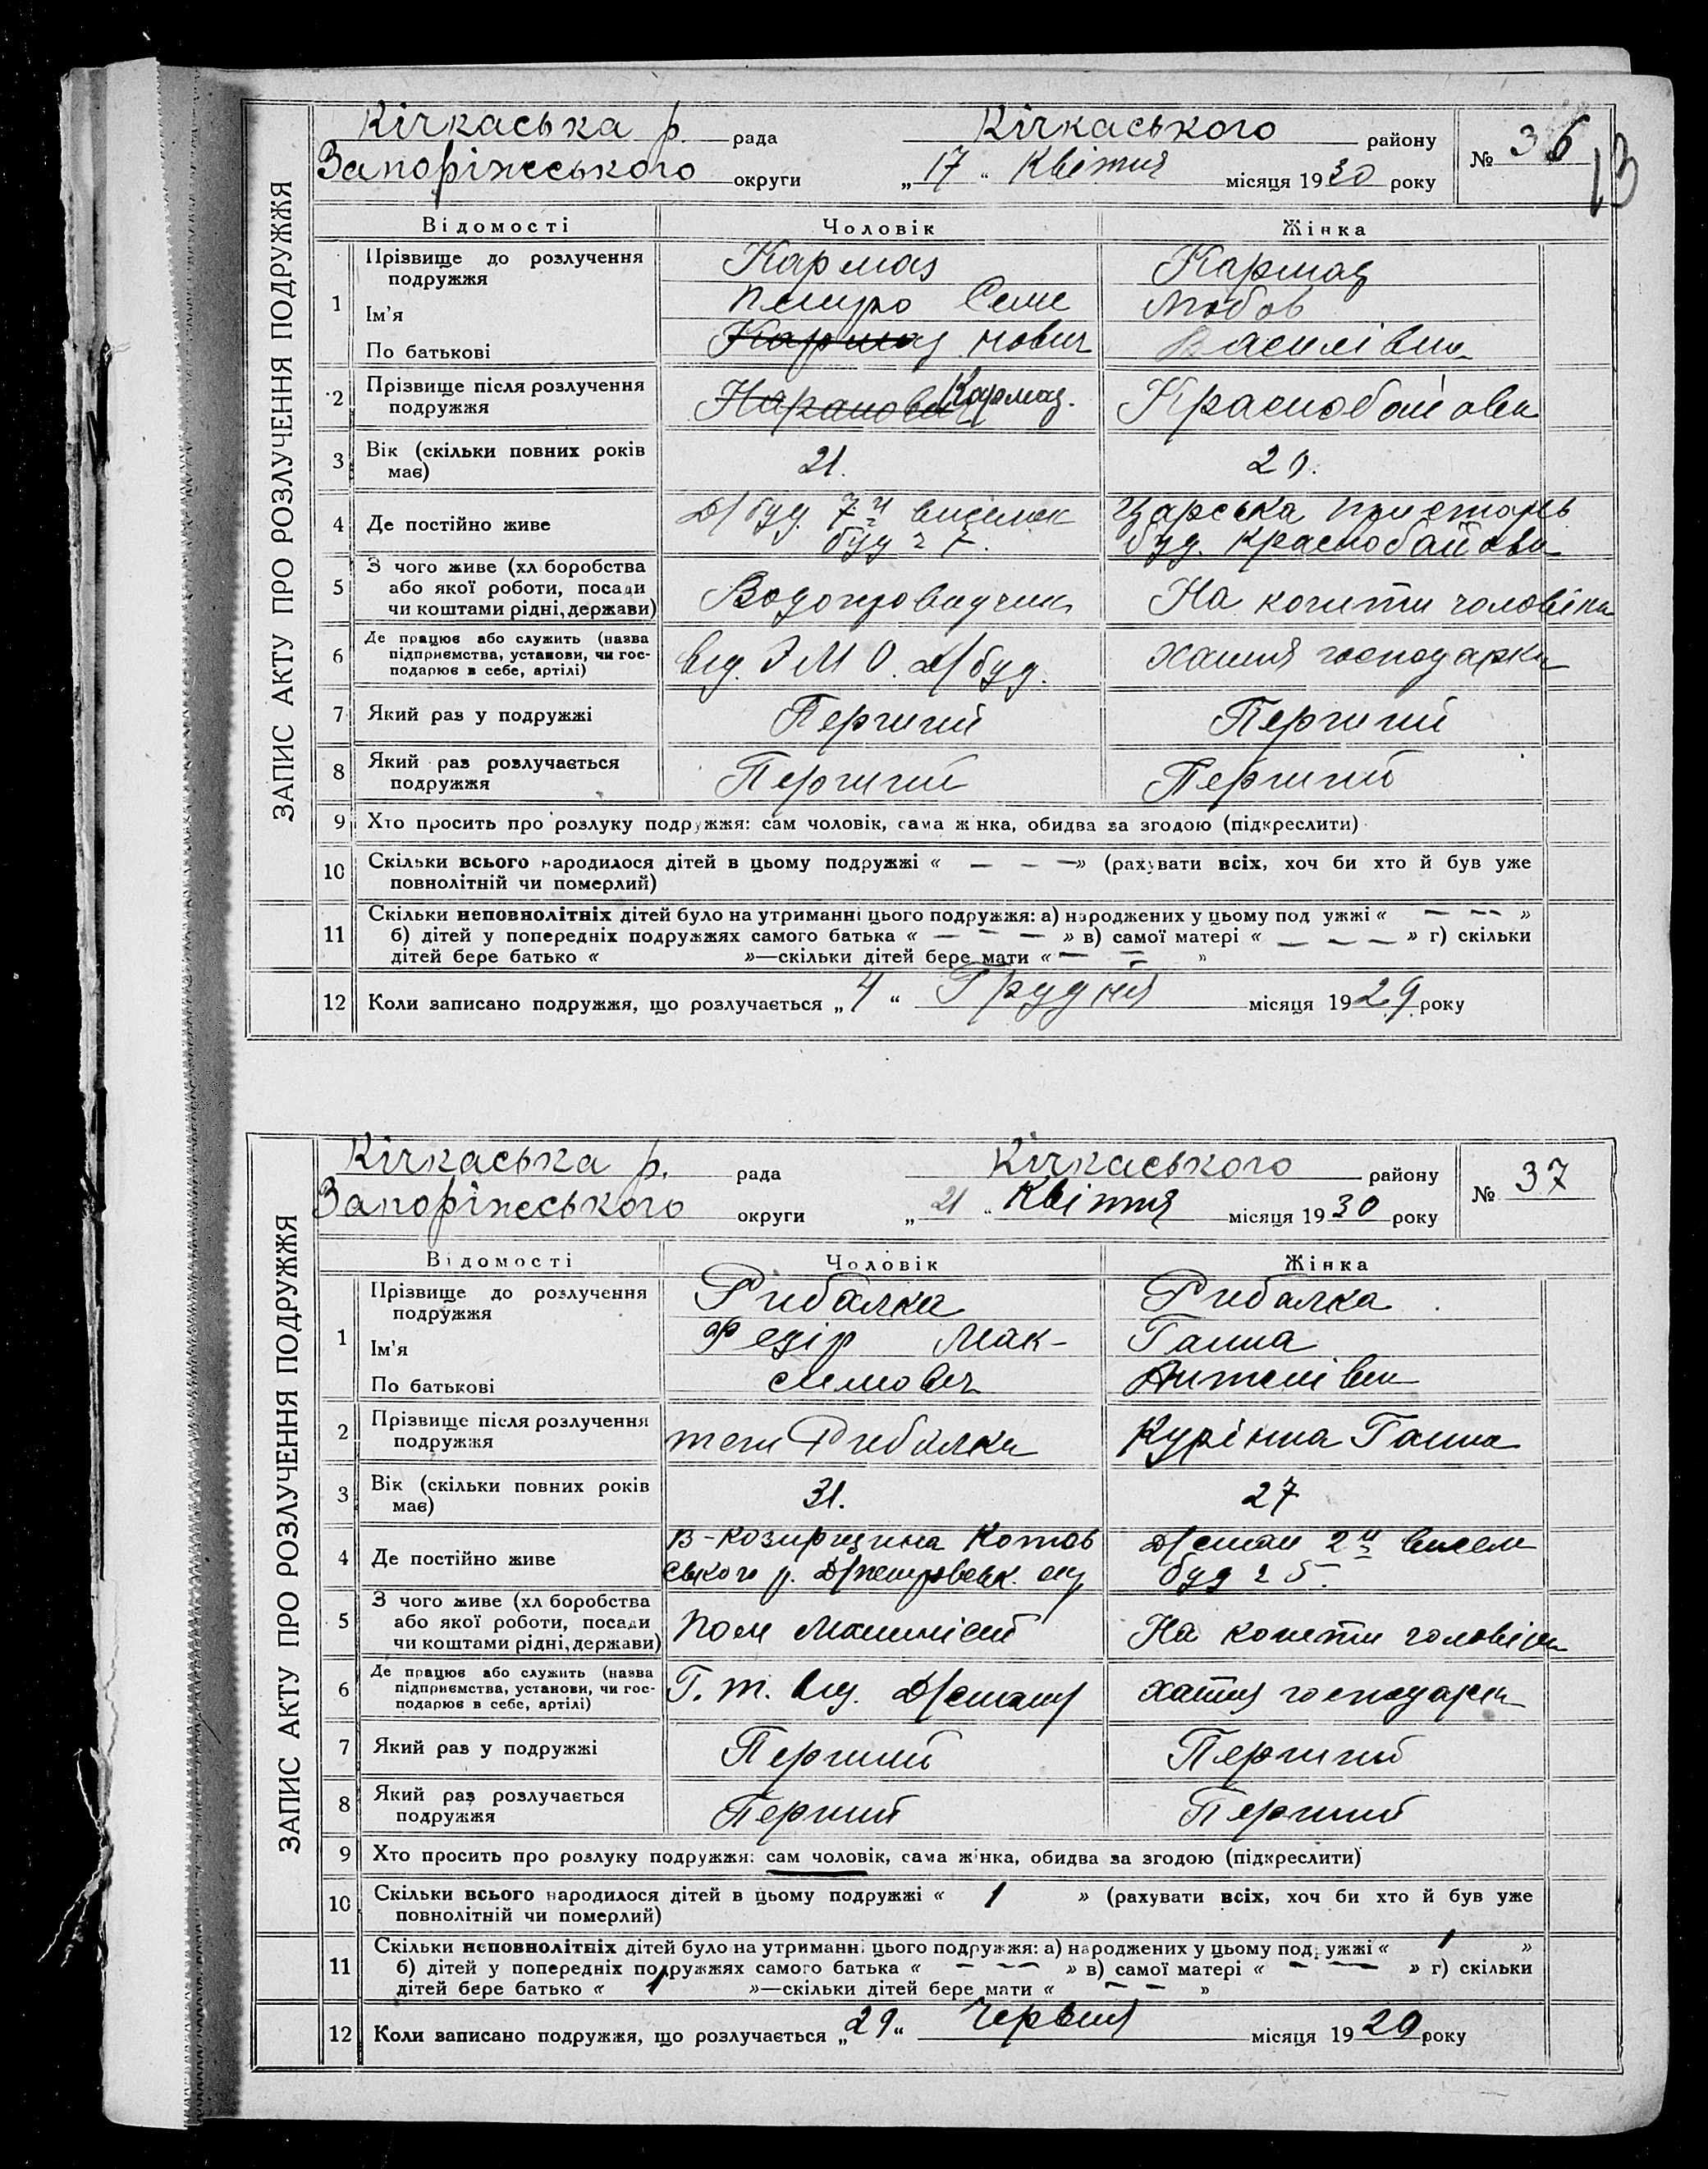 Кічкаська р. рада Кічкаського району № 36
13
Запоріжського округи „17“ Квітня місяця 1930 року
ЗАПИС АКТУ ПРО РОЗЛУЧЕННЯ ПОДРУЖЖЯ
Відомості Чоловік Жінка
1 Прізвище до розлучення подружжя Кармаз Кармаз
Ім'я Петро Семе Любов
По батькові Кармаз нович Василівна
2 Прізвище після розлучення подружжя Кармаз. Краснобайова
3 Вік (скільки повних років має) 21. 20.
4 Де постійно живе Д/буд. 7й виселок Царська пристань
буд 2 7. буд. Краснобайова
5 З чого живе (хлiборобства або якої роботи, посади чи коштами рідні, держави) Водопроводчик На кошти чоловіка
6 Де працює або служить (назва підприємства, установи, чи господарює в себе, артілі) від. Э М О. Д/буд. хатня господарка
7 Який раз у подружжі Перший Перший
8 Який раз розлучається подружжя Перший Перший
9 Хто просить про розлуку подружжя: сам чоловік, сама жінка, обидва за згодою (підкреслити)
10 Скільки всього народилося дітей в цьому подружжі « — — —» (рахувати всіх, хоч би хто й був уже
повнолітній чи померлий)
11 Скільки неповнолітніх дітей було на утриманні цього подружжя: а) народжених у цьому подружжі « — — »
б) дітей у попередніх подружжях самого батька « — — — » в) самої матері « — — — » г) скільки
дітей бере батько « »—скільки дітей бере мати « — — »
12 Коли записано подружжя, що розлучається „4“ Грудня місяця 1929 року
Кічкаська р. рада Кічкаського району № 37
Запоріжського округи „21“ Квітня місяця 1930 року
ЗАПИС АКТУ ПРО РОЗЛУЧЕННЯ ПОДРУЖЖЯ
Відомості Чоловік Жінка
1 Прізвище до розлучення подружжя Рибалка Рибалка
Ім'я Федір Мак- Ганна
По батькові симович
2 Прізвище після розлучення подружжя теж Рибалка Курінна Ганна
3 Вік (скільки повних років має) 31. 27
4 Де постійно живе В-Козирщина Котов Д/стан 2й висел
ського р. Д/петровськ. окр буд 2 5.
5 З чого живе (хлiборобства або якої роботи, посади чи коштами рідні, держави) Пом машиніст На кошти чоловіка
6 Де працює або служить (назва підприємства, установи, чи господарює в себе, артілі) Г. т. від. Д/стану хатня господарка
7 Який раз у подружжі Перший Перший
8 Який раз розлучається подружжя Перший Перший
9 Хто просить про розлуку подружжя: сам чоловік, сама жінка, обидва за згодою (підкреслити)
10 Скільки всього народилося дітей в цьому подружжі « 1 » (рахувати всіх, хоч би хто й був уже
повнолітній чи померлий)
11 Скільки неповнолітніх дітей було на утриманні цього подружжя: а) народжених у цьому подружжі « 1 »
б) дітей у попередніх подружжях самого батька « — — — » в) самої матері « — — » г) скільки
дітей бере батько « 1 »—скільки дітей бере мати « — — »
12 Коли записано подружжя, що розлучається „29“ Червня місяця 1920 року